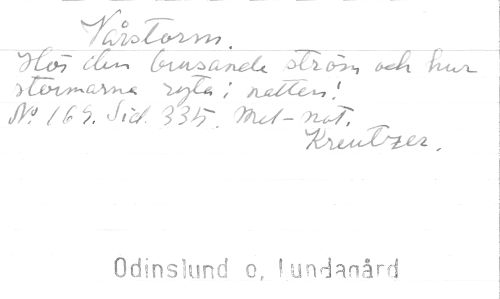 Vårstorm.
Hör den brusande ström och hur
stormarna ryta i natten!
No 169. Sid. 335. Mel-not.
Kreutzer.
Odinslund o, Lundagård